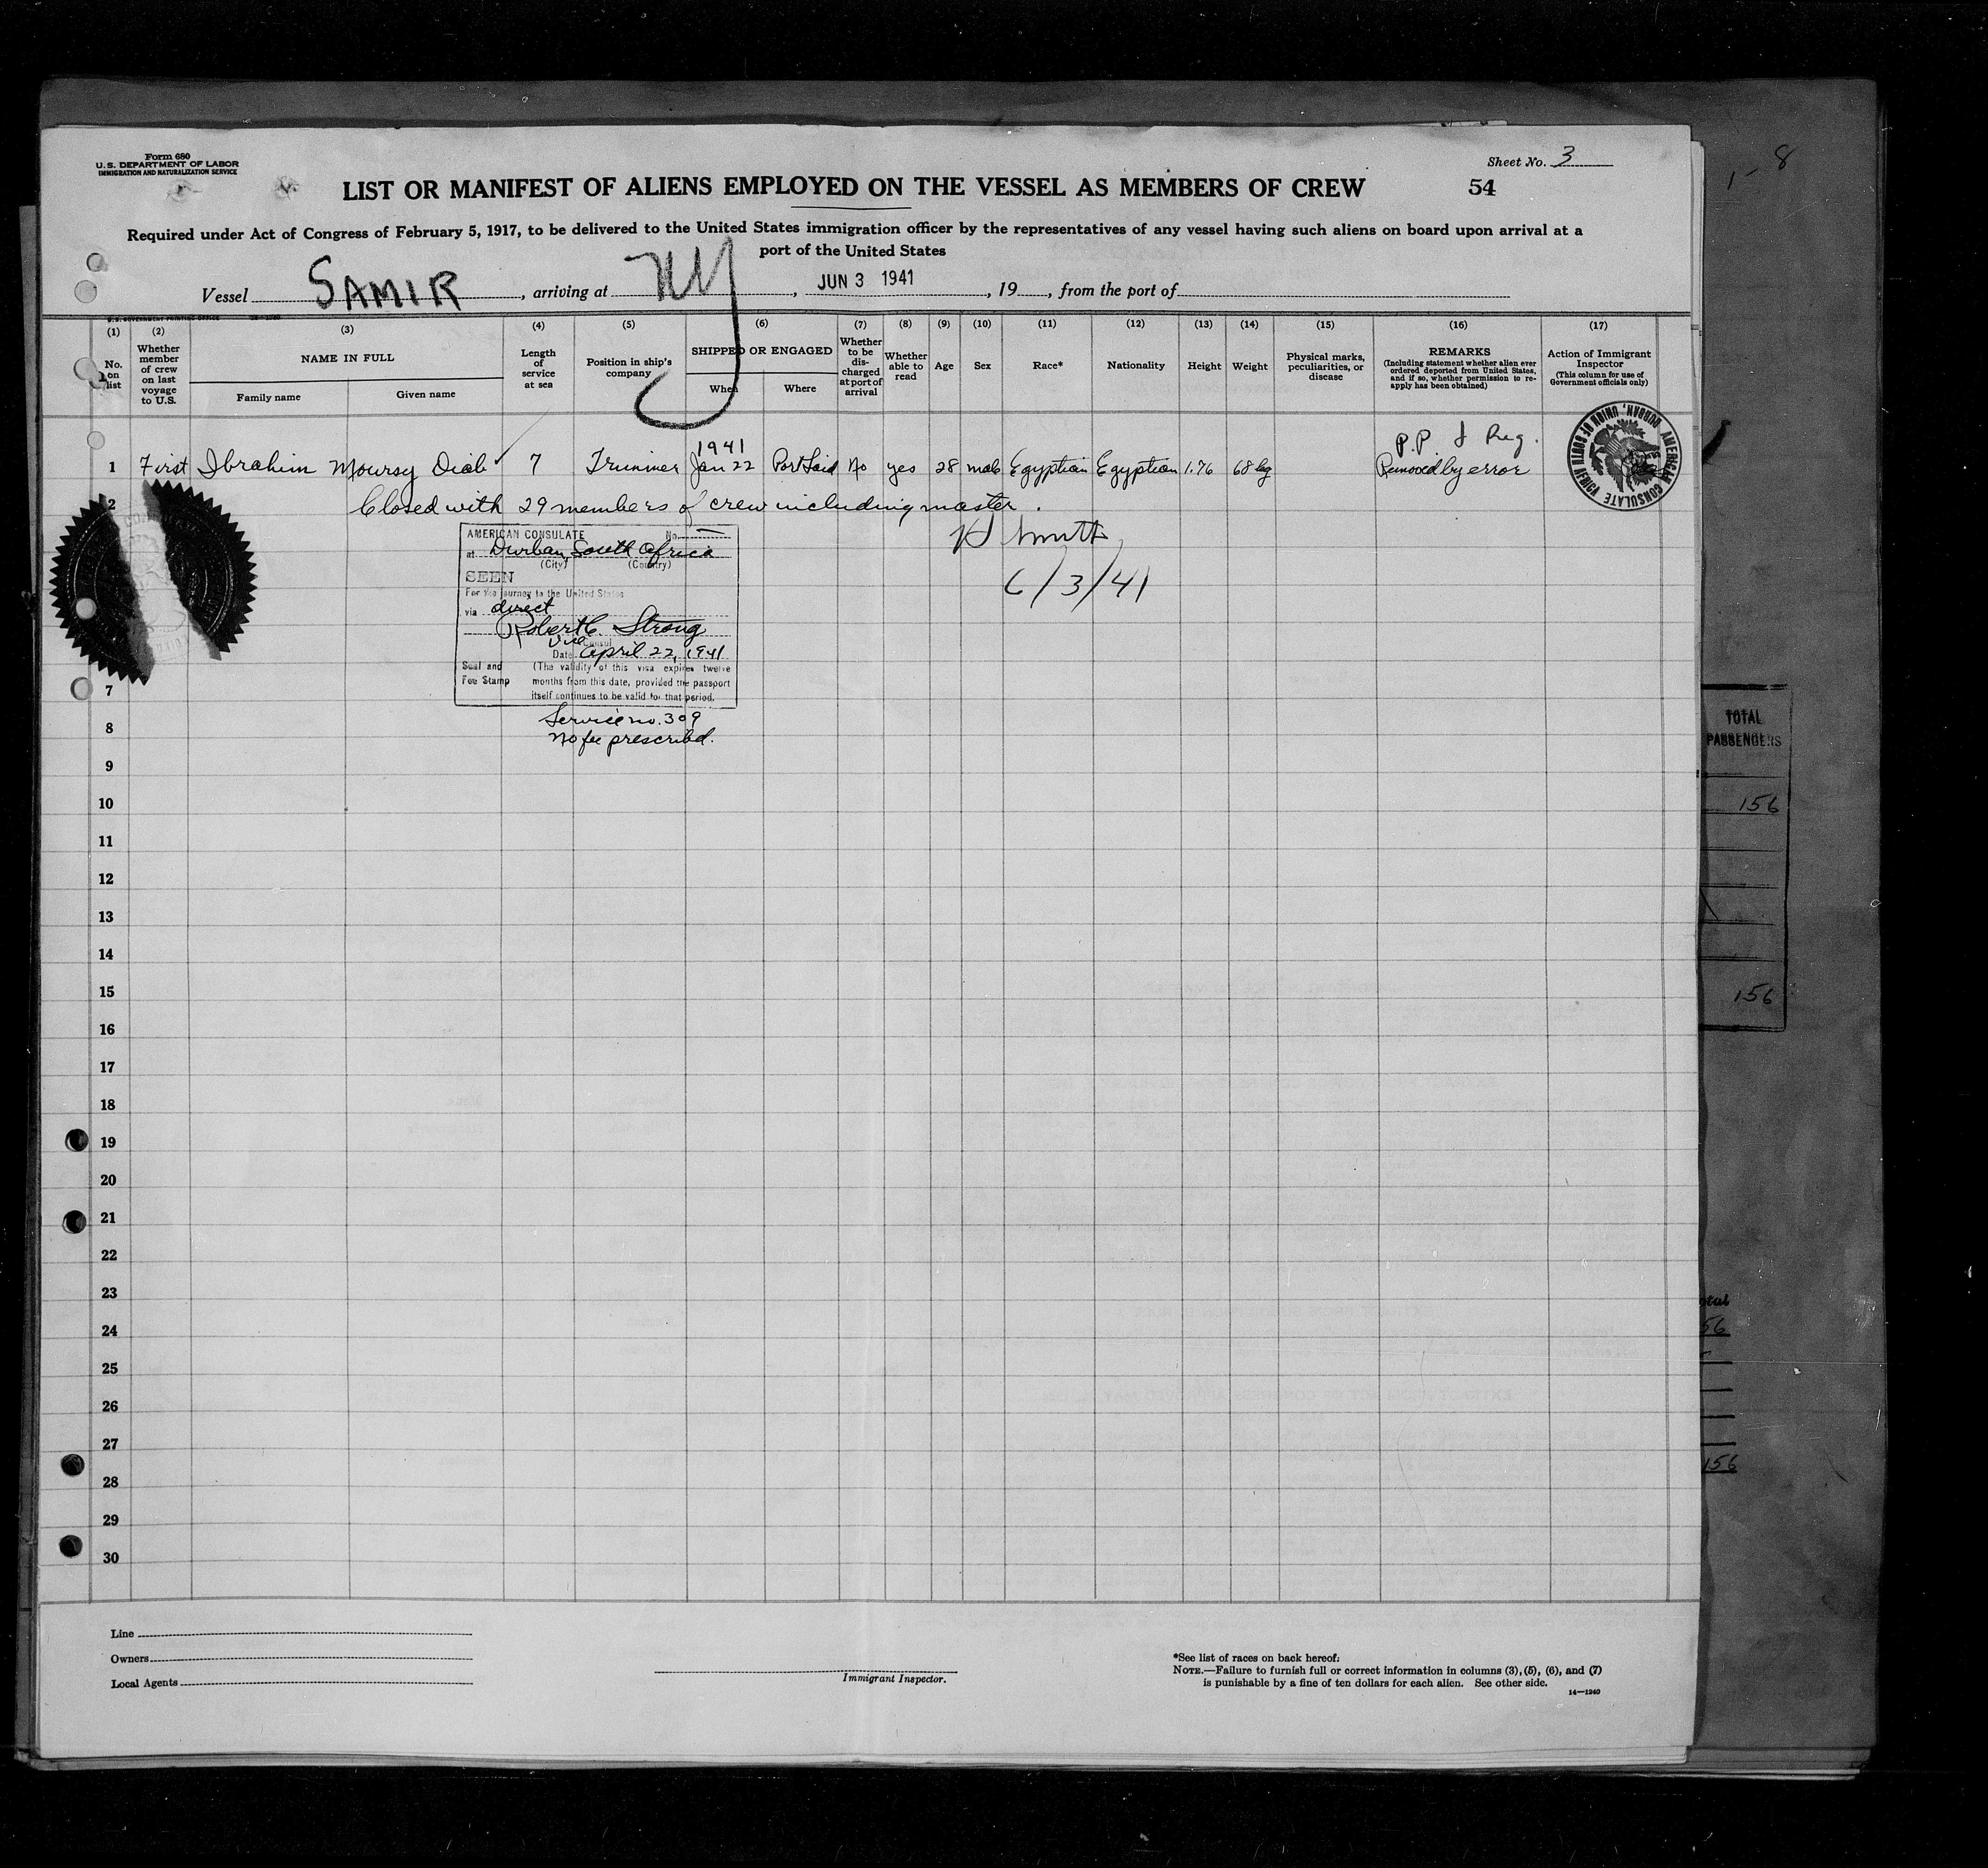 Form 680
U.S. DEPARTMENT OF LABOR
IMMIGRATION AND NATURALIZATION SERVICE
Sheet No. 3
LIST OR MANIFEST OF ALIENS EMPLOYED ON THE VESSEL AS MEMBERS OF CREW
54
1-8
Required under Act of Congress of February 5, 1917, to be delivered to the United States immigration officer by the representatives of any vessel having such aliens on board upon arrival at a
port of the United States
Vessel SAMIR, arriving at NY, JUN 3 1941, 19, from the port of
(1) (2) (3) (4) (5) (6) (7) (8) (9) (10) (11) (12) (13) (14) (15) (16) (17)
No. on list
Whether member of crew on last voyage to U.S.
NAME IN FULL
Family name
Given name
Length of service at sea
Position in ship's company
SHIPPED OR ENGAGED
When
Where
Whether to be discharged at port of arrival
Whether able to read
Age
Sex
Race*
Nationality
Height
Weight
Physical marks, peculiarities, or disease
REMARKS
(Including statement whether alien ever ordered deported from United States, and if so, whether permission to reapply has been obtained)
Action of Immigrant Inspector
(This column for use of Government officials only)
1941
P.P. & Reg.
1 First Ibrahim Moursy Diab 7 Trimmer Jan 22 Port Said No yes 28 male Egyptian Egyptian 1.76 68 kg Removed by error
AMERICAN CONSULATE DURBAN, UNION OF SOUTH AFRICA
2 Closed with 29 members of crew including master.
AMERICAN CONSULATE No.
at Durban, South Africa
(City) (Country)
SEEN
For the journey to the United States
via direct
Robert C. Strong
Vice Consul
Date April 22, 1941
Seal and Fee Stamp
(The validity of this visa expires twelve
months from this date, provided the passport
itself continues to be valid for that period.
Smith
6/3/41
Service no. 309
No fee prescribed.
7
8
9
10
11
12
13
14
15
16
17
18
19
20
21
22
23
24
25
26
27
28
29
30
TOTAL
PASSENGERS
156
156
otal
56
156
Line
Owners
Local Agents
Immigrant Inspector.
*See list of races on back hereof.
NOTE.—Failure to furnish full or correct information in columns (3), (5), (6), and (7)
is punishable by a fine of ten dollars for each alien. See other side.
14—1240